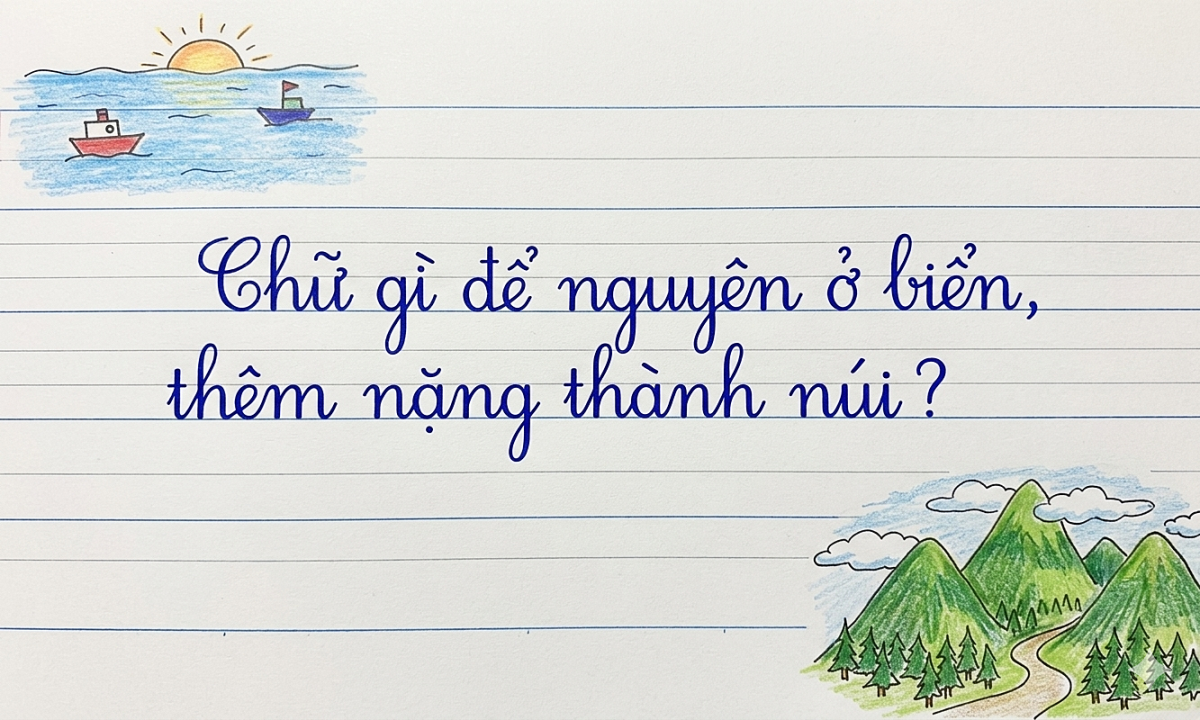 Chữ gì để nguyên ở biển,
thêm nặng thành núi?